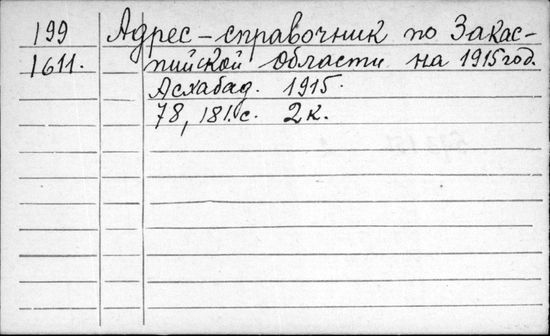 199 Адрес-справочник по Закас-
1611. пийской области на 1915 год.
Асхабад. 1915.
78, 181.с. 2к.